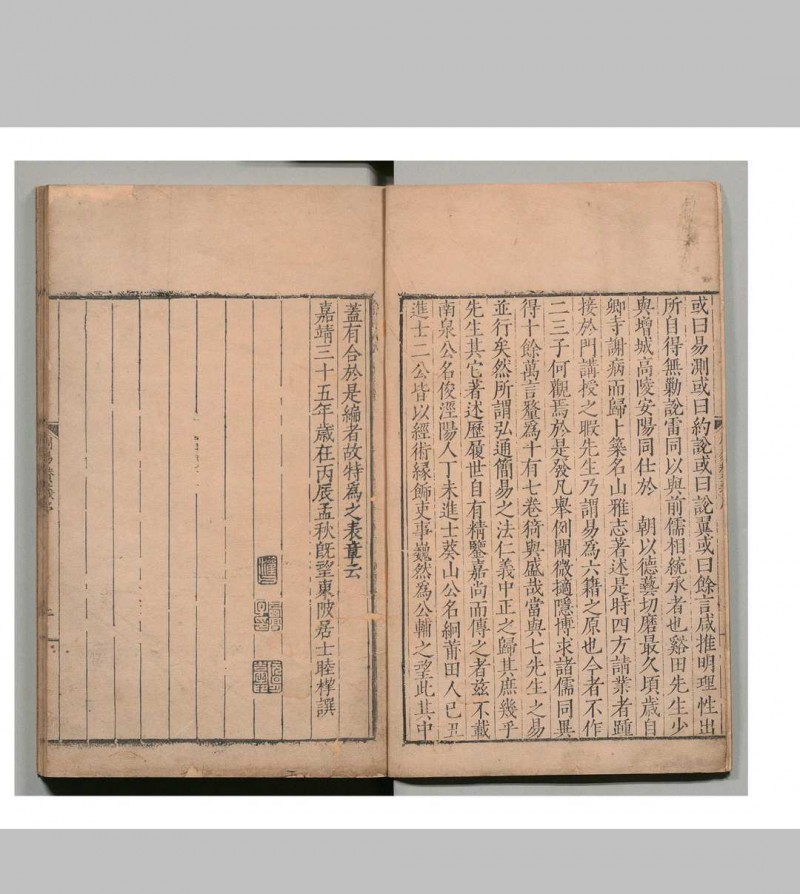 或曰易測或曰約說或曰說翼或曰餘言咸推明理性出
所自得無勦說雷同以與前儒相統承者也谿田先生少
與增城高陵安陽同仕於 朝以德藝切磨最久頃歲自
卿寺謝病而歸卜築名山雅志著述是時四方請業者踵
接於門講授之暇先生乃謂易為六籍之原也今者不作
二三子何觀焉於是發凡舉例闡微摘隱博求諸儒同異
得十餘萬言釐為十有七卷猗與盛哉當與七先生之易
並行矣然所謂弘通簡易之法仁義中正之歸其庶幾乎
先生其它著述歷履世自有精鑒嘉尚而傳之者茲不載
南泉公名俊涇陽人丁未進士葵山公名絅莆田人己丑
進士二公皆以經術縁飾吏事巍然為公輔之望此其中
蓋有合於是編者故特為之表章云
嘉靖三十五年歲在丙辰孟秋既望東陂居士睦㮮譔